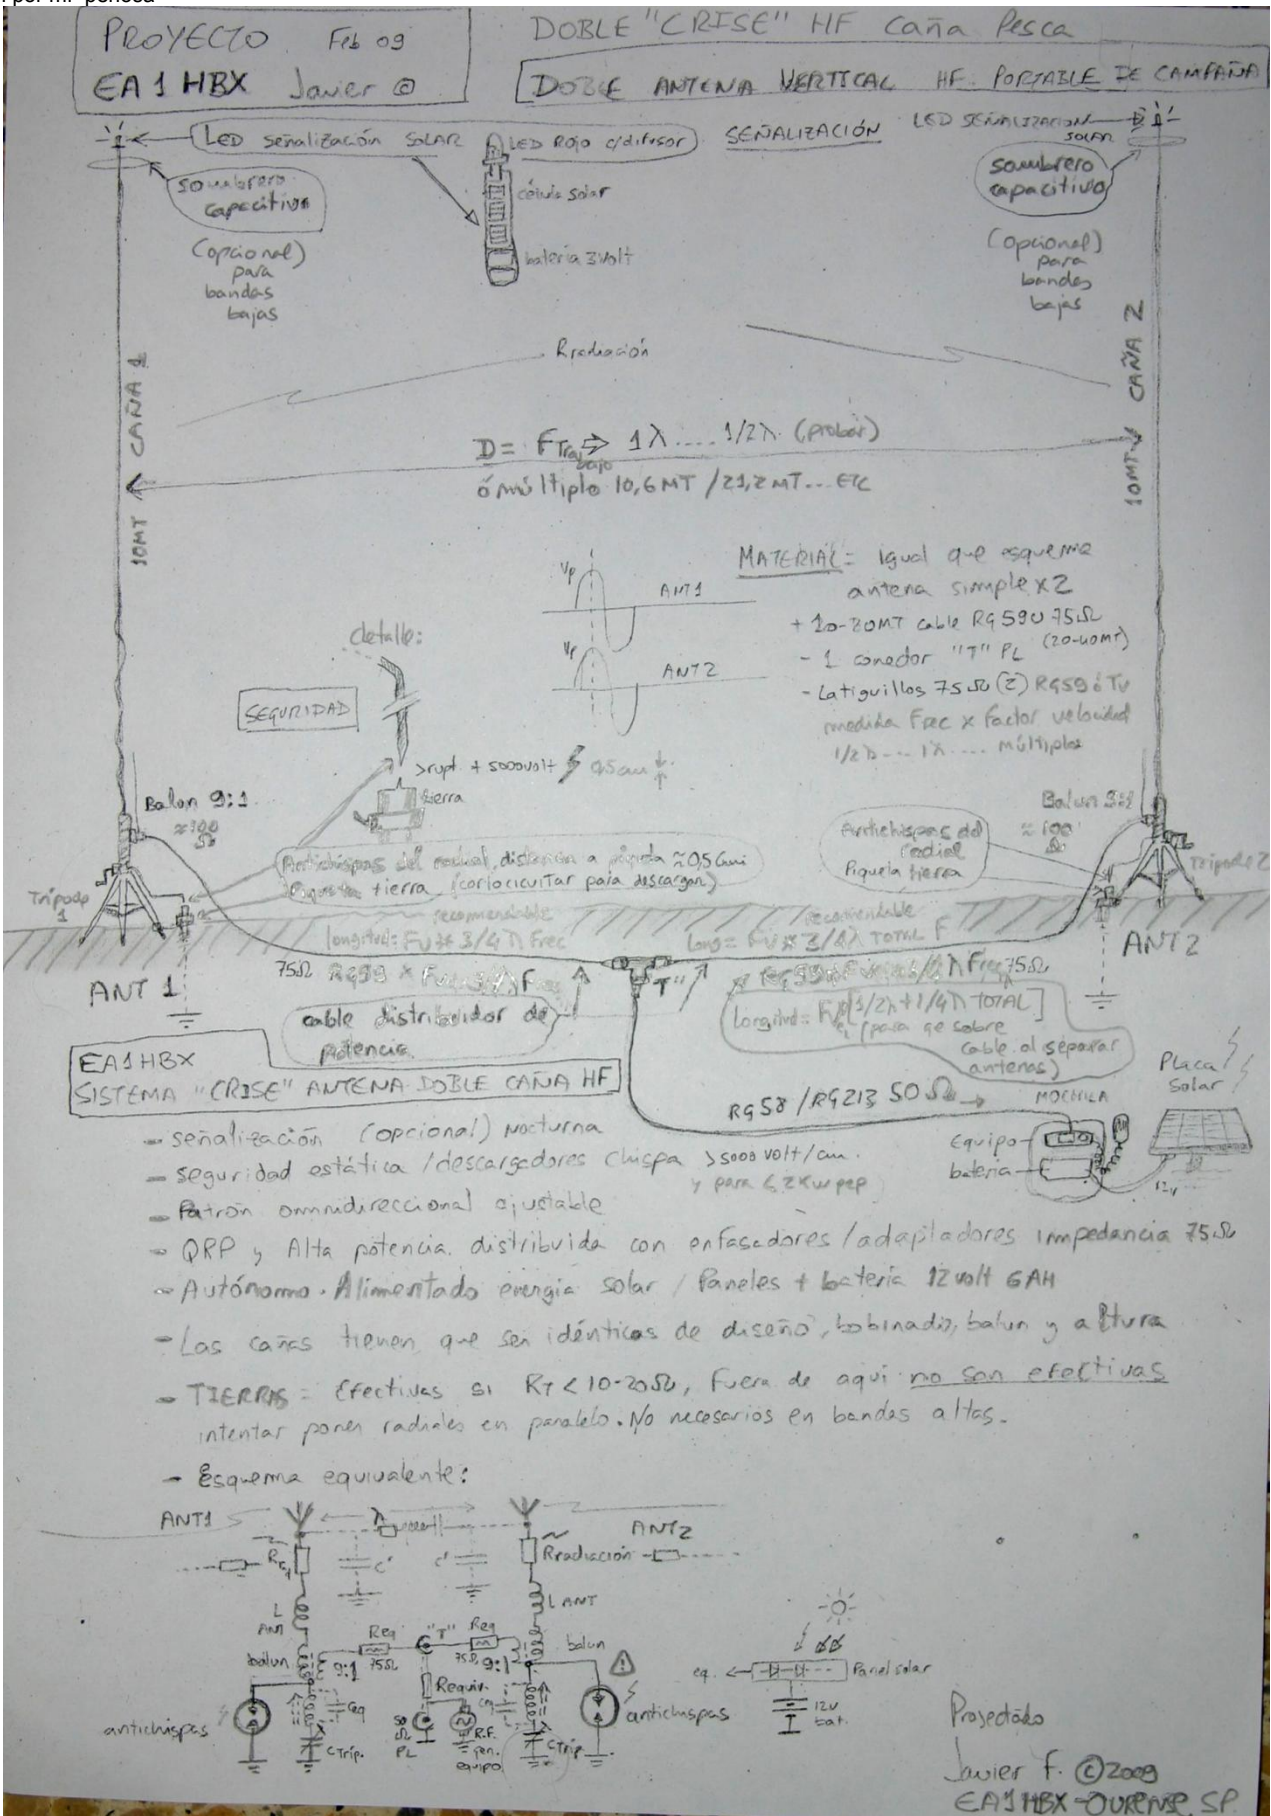 PROYECTO Feb 09
EA1HBX Javier @
DOBLE "CRISE" HF caña Pesca
DOBLE ANTENA VERTICAL HF PORTABLE DE CAMPAÑA
LED señalización SOLAR
LED Rojo c/difusor
SEÑALIZACIÓN
LED SEÑALIZACION SOLAR
sombrero
capacitivo
(opcional)
para
bandas
bajas
célula solar
batería 3volt
sombrero
capacitivo
(opcional)
para
bandas
bajas
CAÑA 1
10MT
CAÑA 2
10MT
Rradiación
D = FTrabajo ⇒ 1λ .... 1/2λ (probar)
ó múltiplo 10,6MT /21,2MT... ETC
Vp ANT1
Vp ANT2
MATERIAL = igual que esquema
antena simple x2
+ 20-30MT cable RG59U 75Ω
(20-40MT)
- 1 conector "T" PL
- Latiguillos 75Ω (2) RG59 ó TV
medida Frec x factor velocidad
1/2λ .... 1λ .... múltiplos
detalle:
SEGURIDAD
>rupt. + 5000volt 0,5cm
tierra
Balun 9:1
≈100
Ω
Balun 9:1
≈100
Ω
Antichispas del radial, distancia a piqueta ≈0,5cm
Piqueta tierra (cortocircuitar para descargar)
Antichispas del
radial
Piqueta tierra
Trípode
1
Trípode 2
recomendable
longitud = Fv * 3/4 λ Frec
recomendable
Long = Fv * 3/4λ TOTAL F
75Ω RG59
"T"
75Ω
ANT 1
ANT 2
cable distribuidor de
potencia
Longitud = [1/2λ + 1/4λ TOTAL]
(para qe sobre
cable al separar
antenas)
EA1HBX
SISTEMA "CRISE" ANTENA DOBLE CAÑA HF
RG58 /RG213 50Ω
MOCHILA
Placa
Solar
Equipo
batería
12V
- señalización (opcional) nocturna
- seguridad estática /descargadores chispa >5000 volt/cm.
y para
- Patrón omnidireccional ajustable
- QRP y Alta potencia distribuida con enfasadores /adaptadores impedancia 75Ω
- Autónomo. Alimentado energía solar / Paneles + batería 12volt 6AH
- Las cañas tienen que ser idénticas de diseño, bobinado, balun y altura
- TIERRAS = Efectivas si RT < 10-20Ω, Fuera de aquí no son efectivas
intentar poner radiales en paralelo. No necesarios en bandas altas.
- Esquema equivalente:
ANT1
λ
ANT2
Rradiación
C'
C'
L
ANT
L ANT
Req
75Ω
"T"
Req
75Ω
balun
9:1
9:1
balun
Requiv.
Ceq
Ceq
antichispas
antichispas
CTrip.
CTrip.
50
Ω
PL
R.F.
gen.
equipo
eq.
Panel solar
12V
bat.
Proyectado
Javier F. ©2009
EA1HBX - OURENSE SP